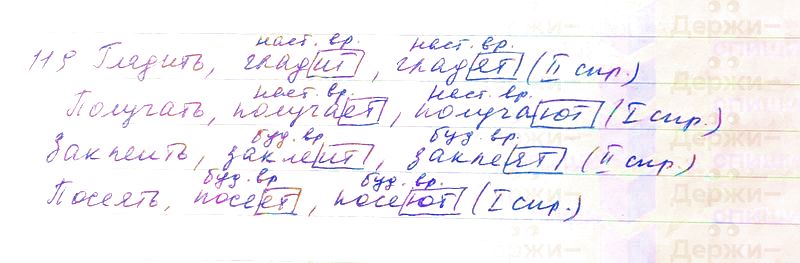 119 Гладить, гладит, гладят (II спр.)
наст. вр. наст. вр.
Получать, получает, получают (I спр.)
наст. вр. наст. вр.
Заклеить, заклеит, заклеят (II спр.)
буд. вр. буд. вр.
Посеять, посеет, посеют (I спр.)
буд. вр. буд. вр.
Держи-
списки
Держи-
Держи-
Держи-